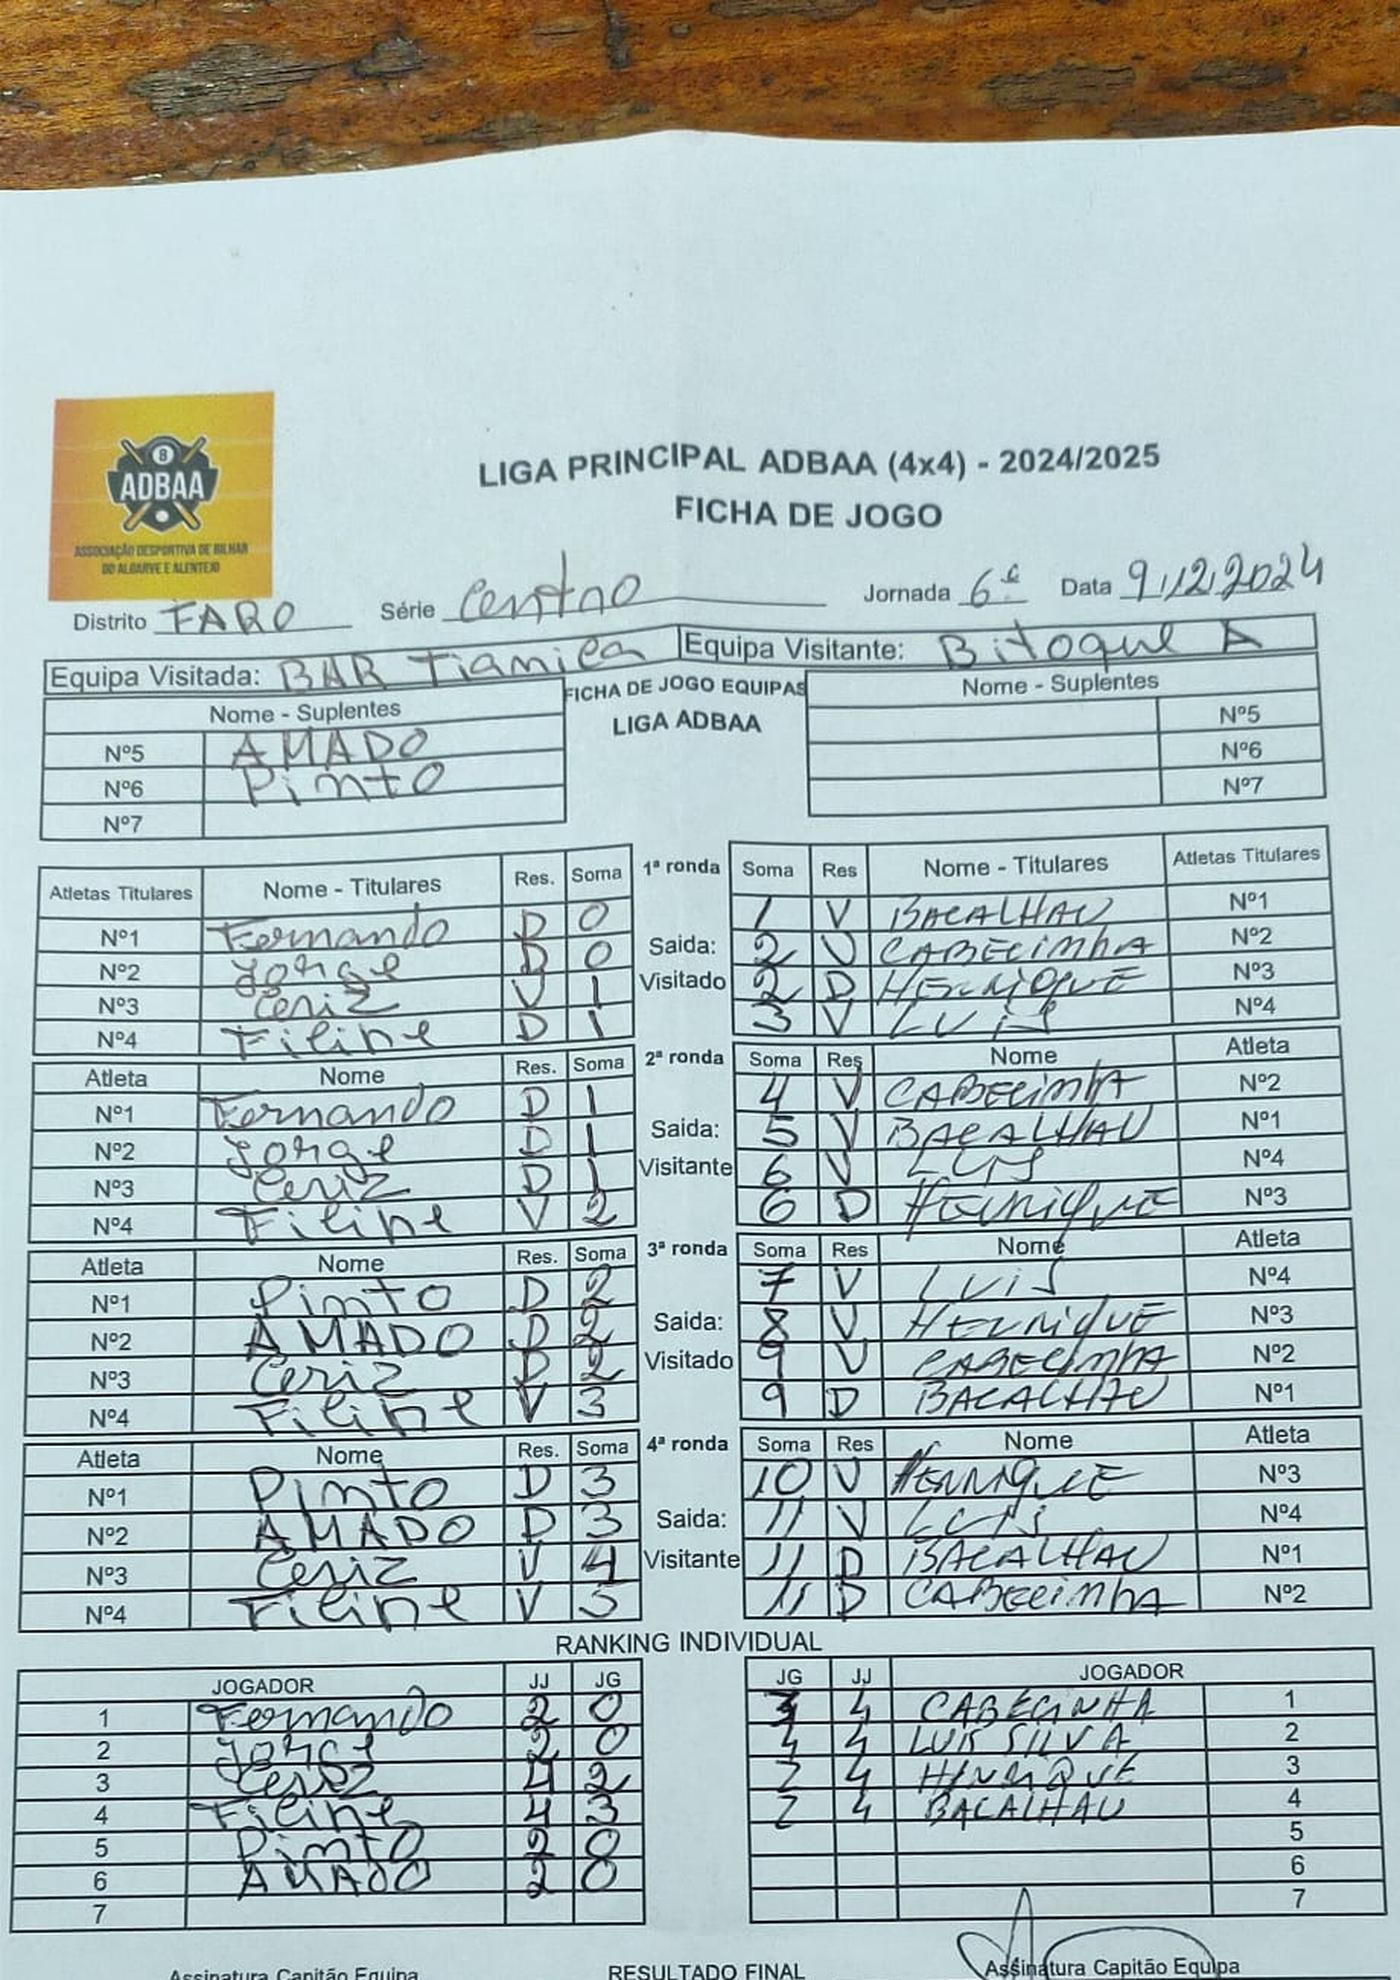 8
ADBAA
ASSOCIAÇÃO DESPORTIVA DE BILHAR
DO ALGARVE E ALENTEJO
LIGA PRINCIPAL ADBAA (4x4) - 2024/2025
FICHA DE JOGO
Distrito FARO Série Centro Jornada 6ª Data 9/12/2024
Equipa Visitada: BAR Tianica Equipa Visitante: Bitoque A
Nome - Suplentes FICHA DE JOGO EQUIPAS Nome - Suplentes
LIGA ADBAA
Nº5 AMADO Nº5
Nº6 Pinto Nº6
Nº7 Nº7
Atletas Titulares Nome - Titulares Res. Soma 1ª ronda Soma Res Nome - Titulares Atletas Titulares
Nº1 Fernando D 0 1 V BACALHAU Nº1
Nº2 Jorge D 0 Saida: 2 V CABECINHA Nº2
Nº3 Ceriz V 1 Visitado 2 D HENRIQUE Nº3
Nº4 Filipe D 1 3 V LUIS Nº4
Atleta Nome Res. Soma 2ª ronda Soma Res Nome Atleta
Nº1 Fernando D 1 4 V CABECINHA Nº2
Nº2 Jorge D 1 Saida: 5 V BACALHAU Nº1
Nº3 Ceriz D 1 Visitante 6 V LUIS Nº4
Nº4 Filipe V 2 6 D HENRIQUE Nº3
Atleta Nome Res. Soma 3ª ronda Soma Res Nome Atleta
Nº1 Pinto D 2 7 V LUIS Nº4
Nº2 AMADO D 2 Saida: 8 V HENRIQUE Nº3
Nº3 Ceriz D 2 Visitado 9 V CABECINHA Nº2
Nº4 Filipe V 3 9 D BACALHAU Nº1
Atleta Nome Res. Soma 4ª ronda Soma Res Nome Atleta
Nº1 Pinto D 3 10 V HENRIQUE Nº3
Nº2 AMADO D 3 Saida: 11 V LUIS Nº4
Nº3 Ceriz V 4 Visitante 11 D BACALHAU Nº1
Nº4 Filipe V 5 11 D CABECINHA Nº2
RANKING INDIVIDUAL
JOGADOR JJ JG JG JJ JOGADOR
1 Fernando 2 0 3 4 CABECINHA 1
2 Jorge 2 0 4 4 LUIS SILVA 2
3 Ceriz 4 2 2 4 HENRIQUE 3
4 Filipe 4 3 2 4 BACALHAU 4
5 Pinto 2 0 5
6 AMADO 2 0 6
7 7
Assinatura Capitão Equipa RESULTADO FINAL Assinatura Capitão Equipa